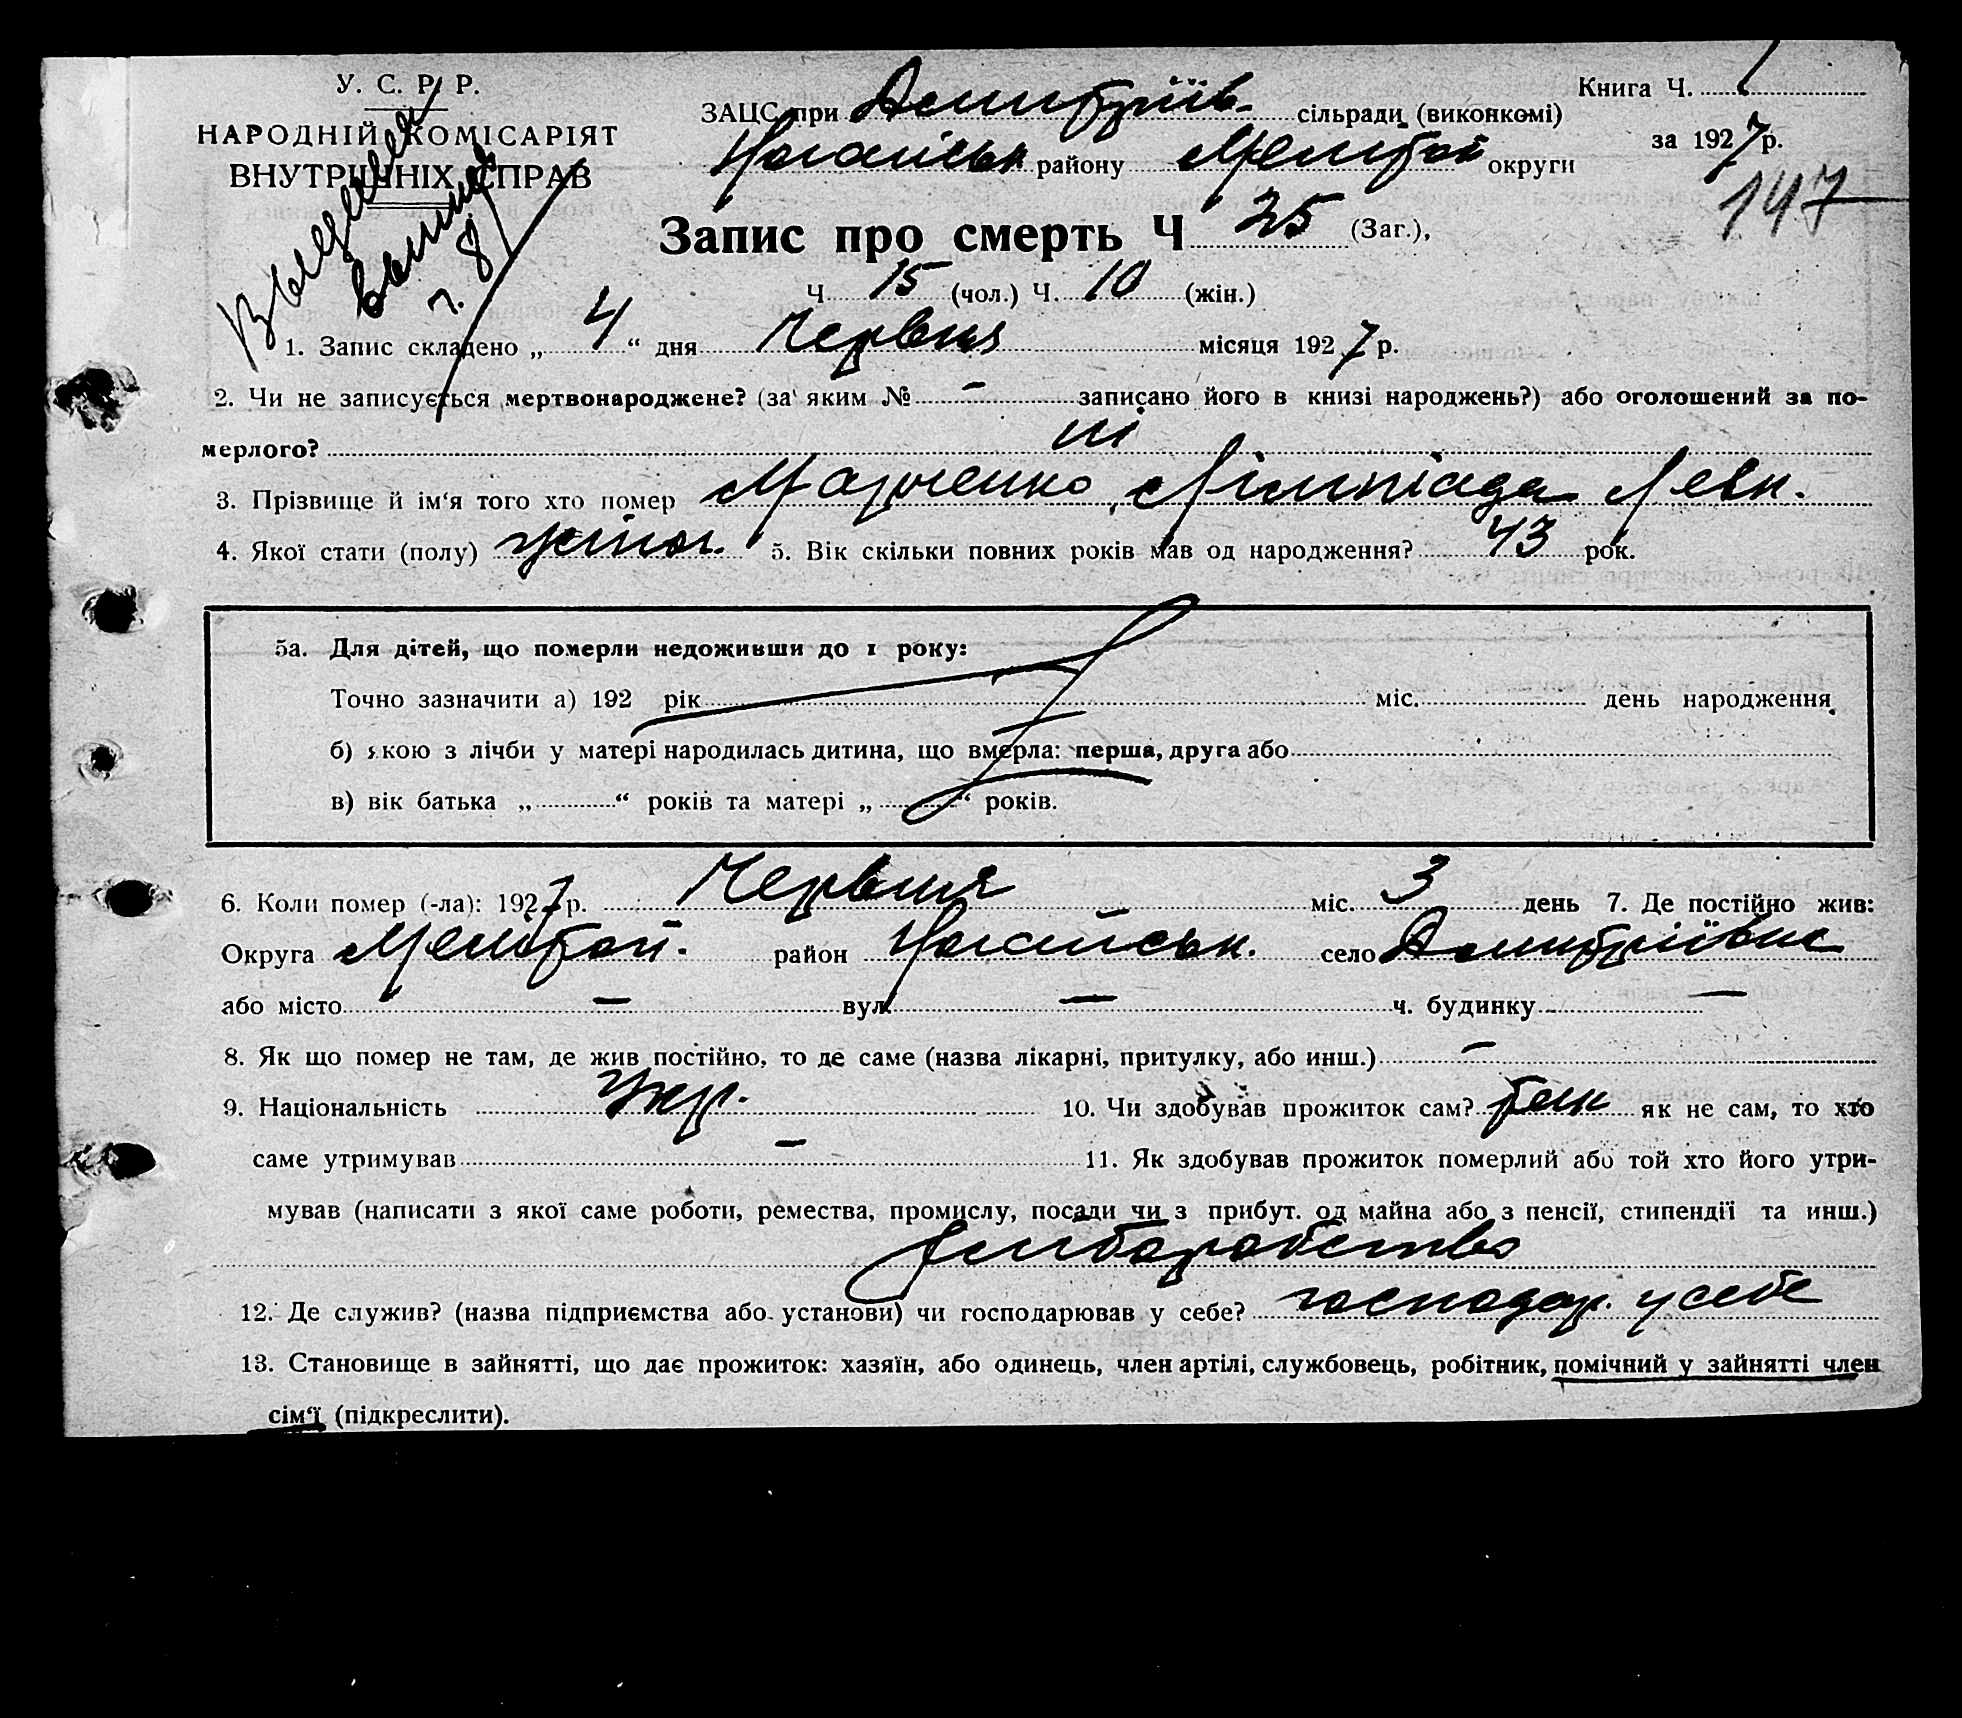 У. С. Р. Р.
НАРОДНІЙ КОМІСАРІЯТ
ВНУТРІШНІХ СПРАВ
ЗАЦС при Дмитріїв. сільради (виконкомі)
Ногайськ району Меліт. округи
Книга Ч.
за 1927 р.
147
Запис про смерть Ч 25 (Заг.),
Ч 15 (чол.) Ч. 10 (жін.)
1. Запис складено „ 4 “ дня Червня місяця 1927 р.
2. Чи не записується мертвонароджене? (за яким № — записано його в книзі народжень?) або оголошений за по-
мерлого? ні
3. Прізвище й ім‘я того хто помер Марченко Лімпіада Левк.
4. Якої стати (полу) жіноч. 5. Вік скільки повних років мав од народження? 43 рок.
5а. Для дітей, що померли недоживши до 1 року:
Точно зазначити а) 192 рік міс. день народження
б) якою з лічби у матері народилась дитина, що вмерла: перша, друга або
в) вік батька „ “ років та матері „ “ років.
6. Коли помер (-ла): 1927 р. Червня міс. 3 день 7. Де постійно жив:
Округа район Ногайськ. село Дмитріївка
або місто — вул. — ч. будинку —
8. Як що помер не там, де жив постійно, то де саме (назва лікарні, притулку, або инш.) —
9. Національність Укр. 10. Чи здобував прожиток сам? як не сам, то хто
саме утримував — 11. Як здобував прожиток померлий або той хто його утри-
мував (написати з якої саме роботи, ремества, промислу, посади чи з прибут. од майна або з пенсії, стипендії та инш.)
Хліборобство
12. Де служив? (назва підприємства або установи) чи господарював у себе? господар. у себе
13. Становище в зайнятті, що дає прожиток: хазяїн, або одинець, член артілі, службовець, робітник, помічний у зайнятті член
сім‘ї (підкреслити).